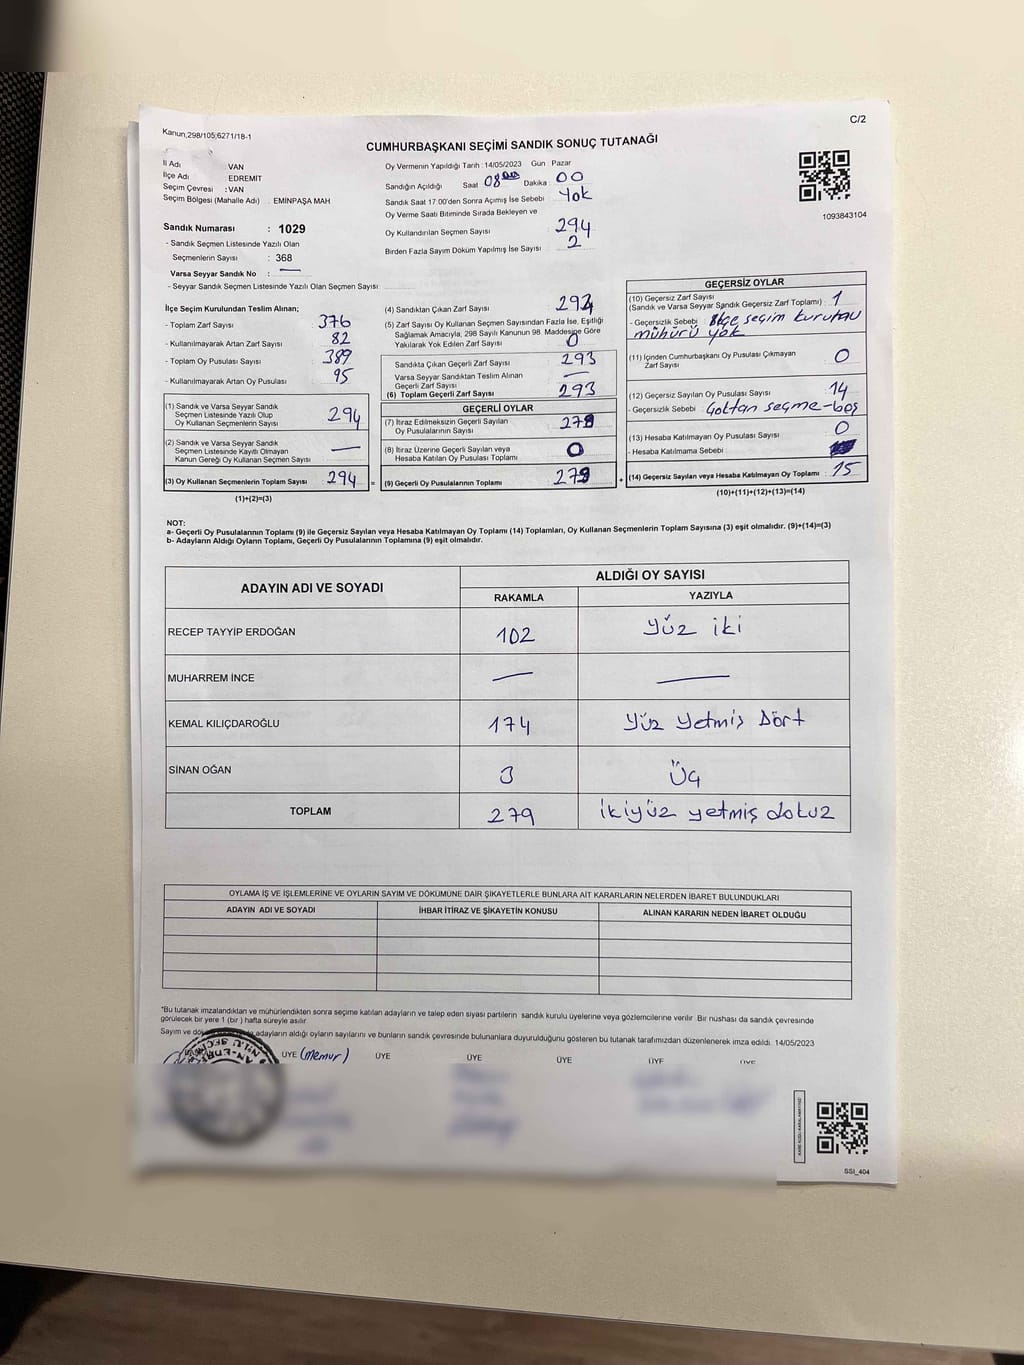 Kanun,298/105,6271/18-1
C/2
CUMHURBAŞKANI SEÇİMİ SANDIK SONUÇ TUTANAĞI
İl Adı VAN
İlçe Adı EDREMIT
Seçim Çevresi : VAN
Seçim Bölgesi (Mahalle Adı) . EMİNPAŞA MAH
Sandık Numarası : 1029
- Sandık Seçmen Listesinde Yazılı Olan
Seçmenlerin Sayısı : 368
Varsa Seyyar Sandık No : —
- Seyyar Sandık Seçmen Listesinde Yazılı Olan Seçmen Sayısı
Oy Vermenin Yapıldığı Tarih : 14/05/2023 Gün : Pazar
Sandığın Açıldığı Saat 08 Dakika : 00
Sandık Saat 17.00'den Sonra Açımış İse Sebebi Yok
Oy Verme Saati Bitiminde Sırada Bekleyen ve
Oy Kullandırılan Seçmen Sayısı 294
Birden Fazla Sayım Döküm Yapılmış İse Sayısı 2
1093843104
İlçe Seçim Kurulundan Teslim Alınan;
- Toplam Zarf Sayısı 376
- Kullanılmayarak Artan Zarf Sayısı 82
- Toplam Oy Pusulası Sayısı 389
- Kullanılmayarak Artan Oy Pusulası 95
(1) Sandık ve Varsa Seyyar Sandık
Seçmen Listesinde Yazılı Olup
Oy Kullanan Seçmenlerin Sayısı 294
(2) Sandık ve Varsa Seyyar Sandık
Seçmen Listesinde Kayıtlı Olmayan
Kanun Gereği Oy Kullanan Seçmen Sayısı —
(3) Oy Kullanan Seçmenlerin Toplam Sayısı 294 =
(1)+(2)=(3)
(4) Sandıktan Çıkan Zarf Sayısı
(5) Zarf Sayısı Oy Kullanan Seçmen Sayısından Fazla İse, Eşitliği
Sağlamak Amacıyla, 298 Sayılı Kanunun 98. Maddesine Göre
Yakılarak Yok Edilen Zarf Sayısı 0
Sandıkta Çıkan Geçerli Zarf Sayısı 293
Varsa Seyyar Sandıktan Teslim Alınan
Geçerli Zarf Sayısı —
(6) Toplam Geçerli Zarf Sayısı 293
GEÇERLİ OYLAR
(7) İtiraz Edilmeksizin Geçerli Sayılan
Oy Pusulalarının Sayısı 279
(8) İtiraz Üzerine Geçerli Sayılan veya
Hesaba Katılan Oy Pusulası Toplamı 0
(9) Geçerli Oy Pusulalarının Toplamı 279 +
GEÇERSİZ OYLAR
(10) Geçersiz Zarf Sayısı
(Sandık ve Varsa Seyyar Sandık Geçersiz Zarf Toplamı) : 1
- Geçersizlik Sebebi : ilçe seçim kurulu
mühürü yok
(11) İçinden Cumhurbaşkanı Oy Pusulası Çıkmayan
Zarf Sayısı 0
(12) Geçersiz Sayılan Oy Pusulası Sayısı 14
- Geçersizlik Sebebi : Çoktan seçme-boş
(13) Hesaba Katılmayan Oy Pusulası Sayısı 0
- Hesaba Katılmama Sebebi
(14) Geçersiz Sayılan veya Hesaba Katılmayan Oy Toplamı : 15
(10)+(11)+(12)+(13)=(14)
NOT:
a- Geçerli Oy Pusulalarının Toplamı (9) ile Geçersiz Sayılan veya Hesaba Katılmayan Oy Toplamı (14) Toplamları, Oy Kullanan Seçmenlerin Toplam Sayısına (3) eşit olmalıdır. (9)+(14)=(3)
b- Adayların Aldığı Oyların Toplamı, Geçerli Oy Pusulalarının Toplamına (9) eşit olmalıdır.
ADAYIN ADI VE SOYADI ALDIĞI OY SAYISI
RAKAMLA YAZIYLA
RECEP TAYYİP ERDOĞAN 102 yüz iki
MUHARREM İNCE — —
KEMAL KILIÇDAROĞLU 174 yüz yetmiş Dört
SİNAN OĞAN 3 Üç
TOPLAM 279 ikiyüz yetmiş dokuz
OYLAMA İŞ VE İŞLEMLERİNE VE OYLARIN SAYIM VE DÖKÜMÜNE DAİR ŞİKAYETLERLE BUNLARA AİT KARARLARIN NELERDEN İBARET BULUNDUKLARI
ADAYIN ADI VE SOYADI İHBAR İTİRAZ VE ŞİKAYETİN KONUSU ALINAN KARARIN NEDEN İBARET OLDUĞU
*Bu tutanak imzalandıktan ve mühürlendikten sonra seçime katılan adayların ve talep eden siyasi partilerin sandık kurulu üyelerine veya gözlemcilerine verilir. Bir nüshası da sandık çevresinde
görülecek bir yere 1 (bir) hafta süreyle asılır.
Sayım ve adayların aldığı oyların sayılarını ve bunların sandık çevresinde bulunanlara duyurulduğunu gösteren bu tutanak tarafımızdan düzenlenerek imza edildi. 14/05/2023
ÜYE (memur) ÜYE ÜYE ÜYE ÜYE ÜYE
SSI_404